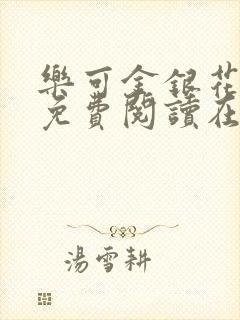 樂可金銀花
免費閱讀在
湯雪耕